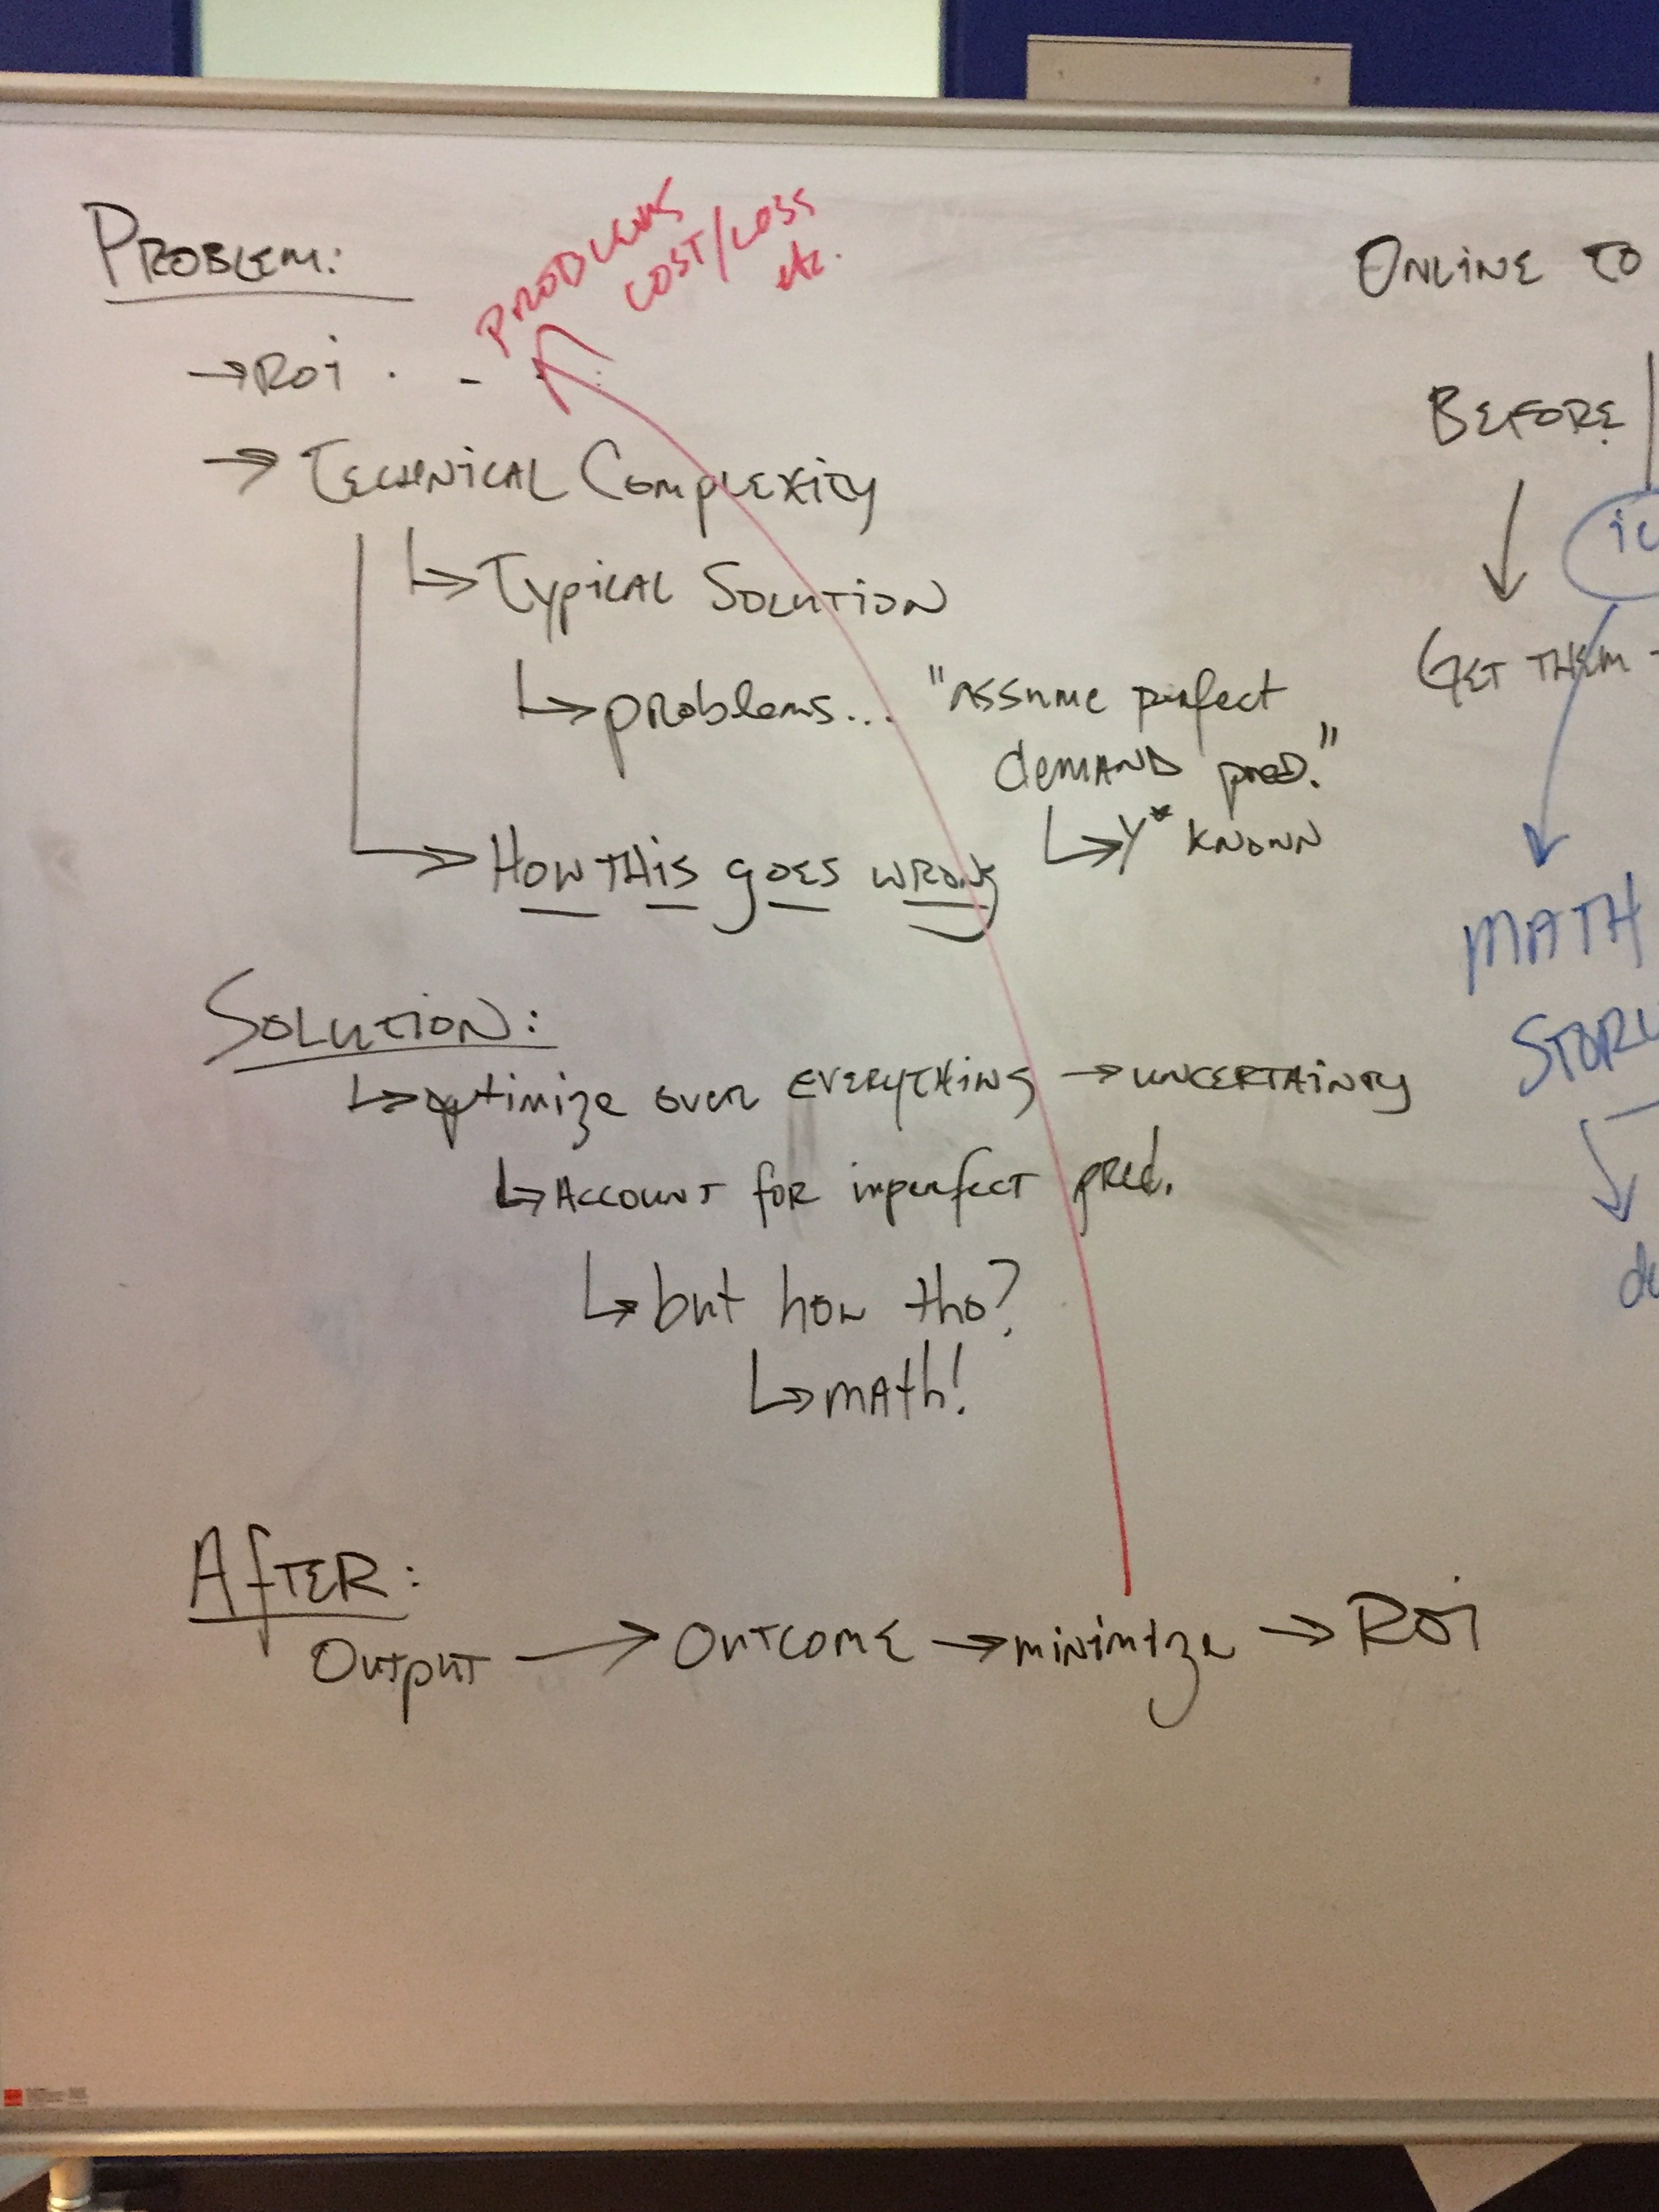 PROBLEM:
→ ROI . . -
PRODUCES
COST/LOSS
etc.
→ TECHNICAL COMPLEXITY
↳ TYPICAL SOLUTION
↳ problems...
"ASSUME perfect
DEMAND PRED."
→ HOW THIS goes wrong
↳ Y* KNOWN
SOLUTION:
↳ optimize over EVERYTHING → UNCERTAINTY
↳ ACCOUNT for imperfect pred.
↳ but how tho?
↳ MATH!
AFTER:
Output → OUTCOME → minimize → ROI
ONLINE TO
BEFORE
GET THEM
MATH